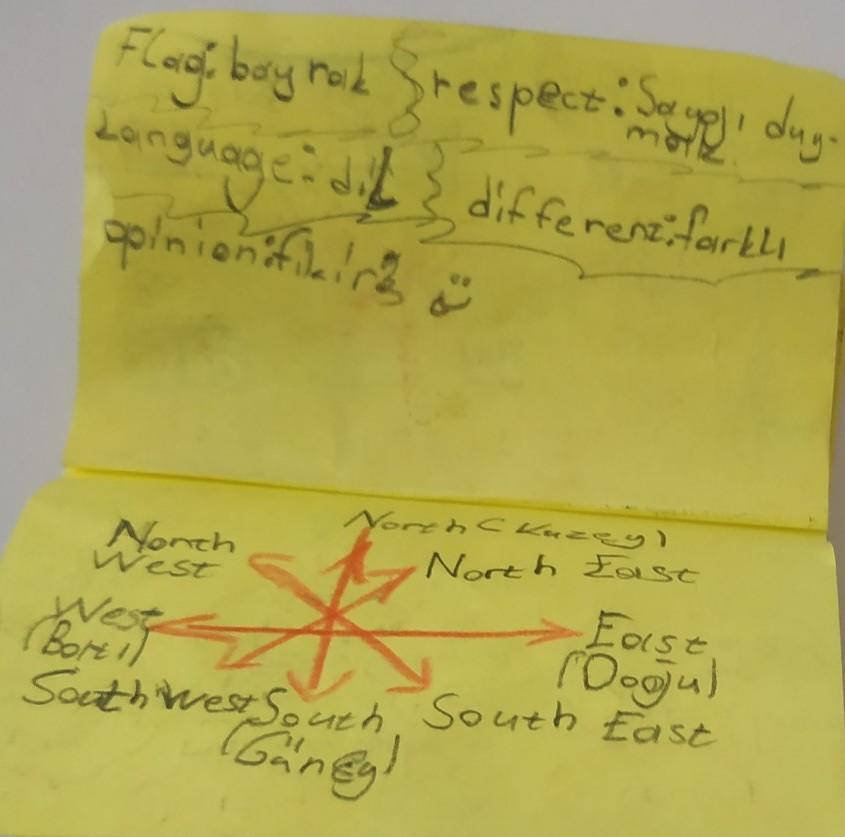 Flag: bayrak respect: Saygı duy-
mak
Language: dil different: farklı
opinion: fikir
North (Kuzey)
North
West
North East
West
(Batı)
East
(Doğu)
South West
South
(Güney)
South East